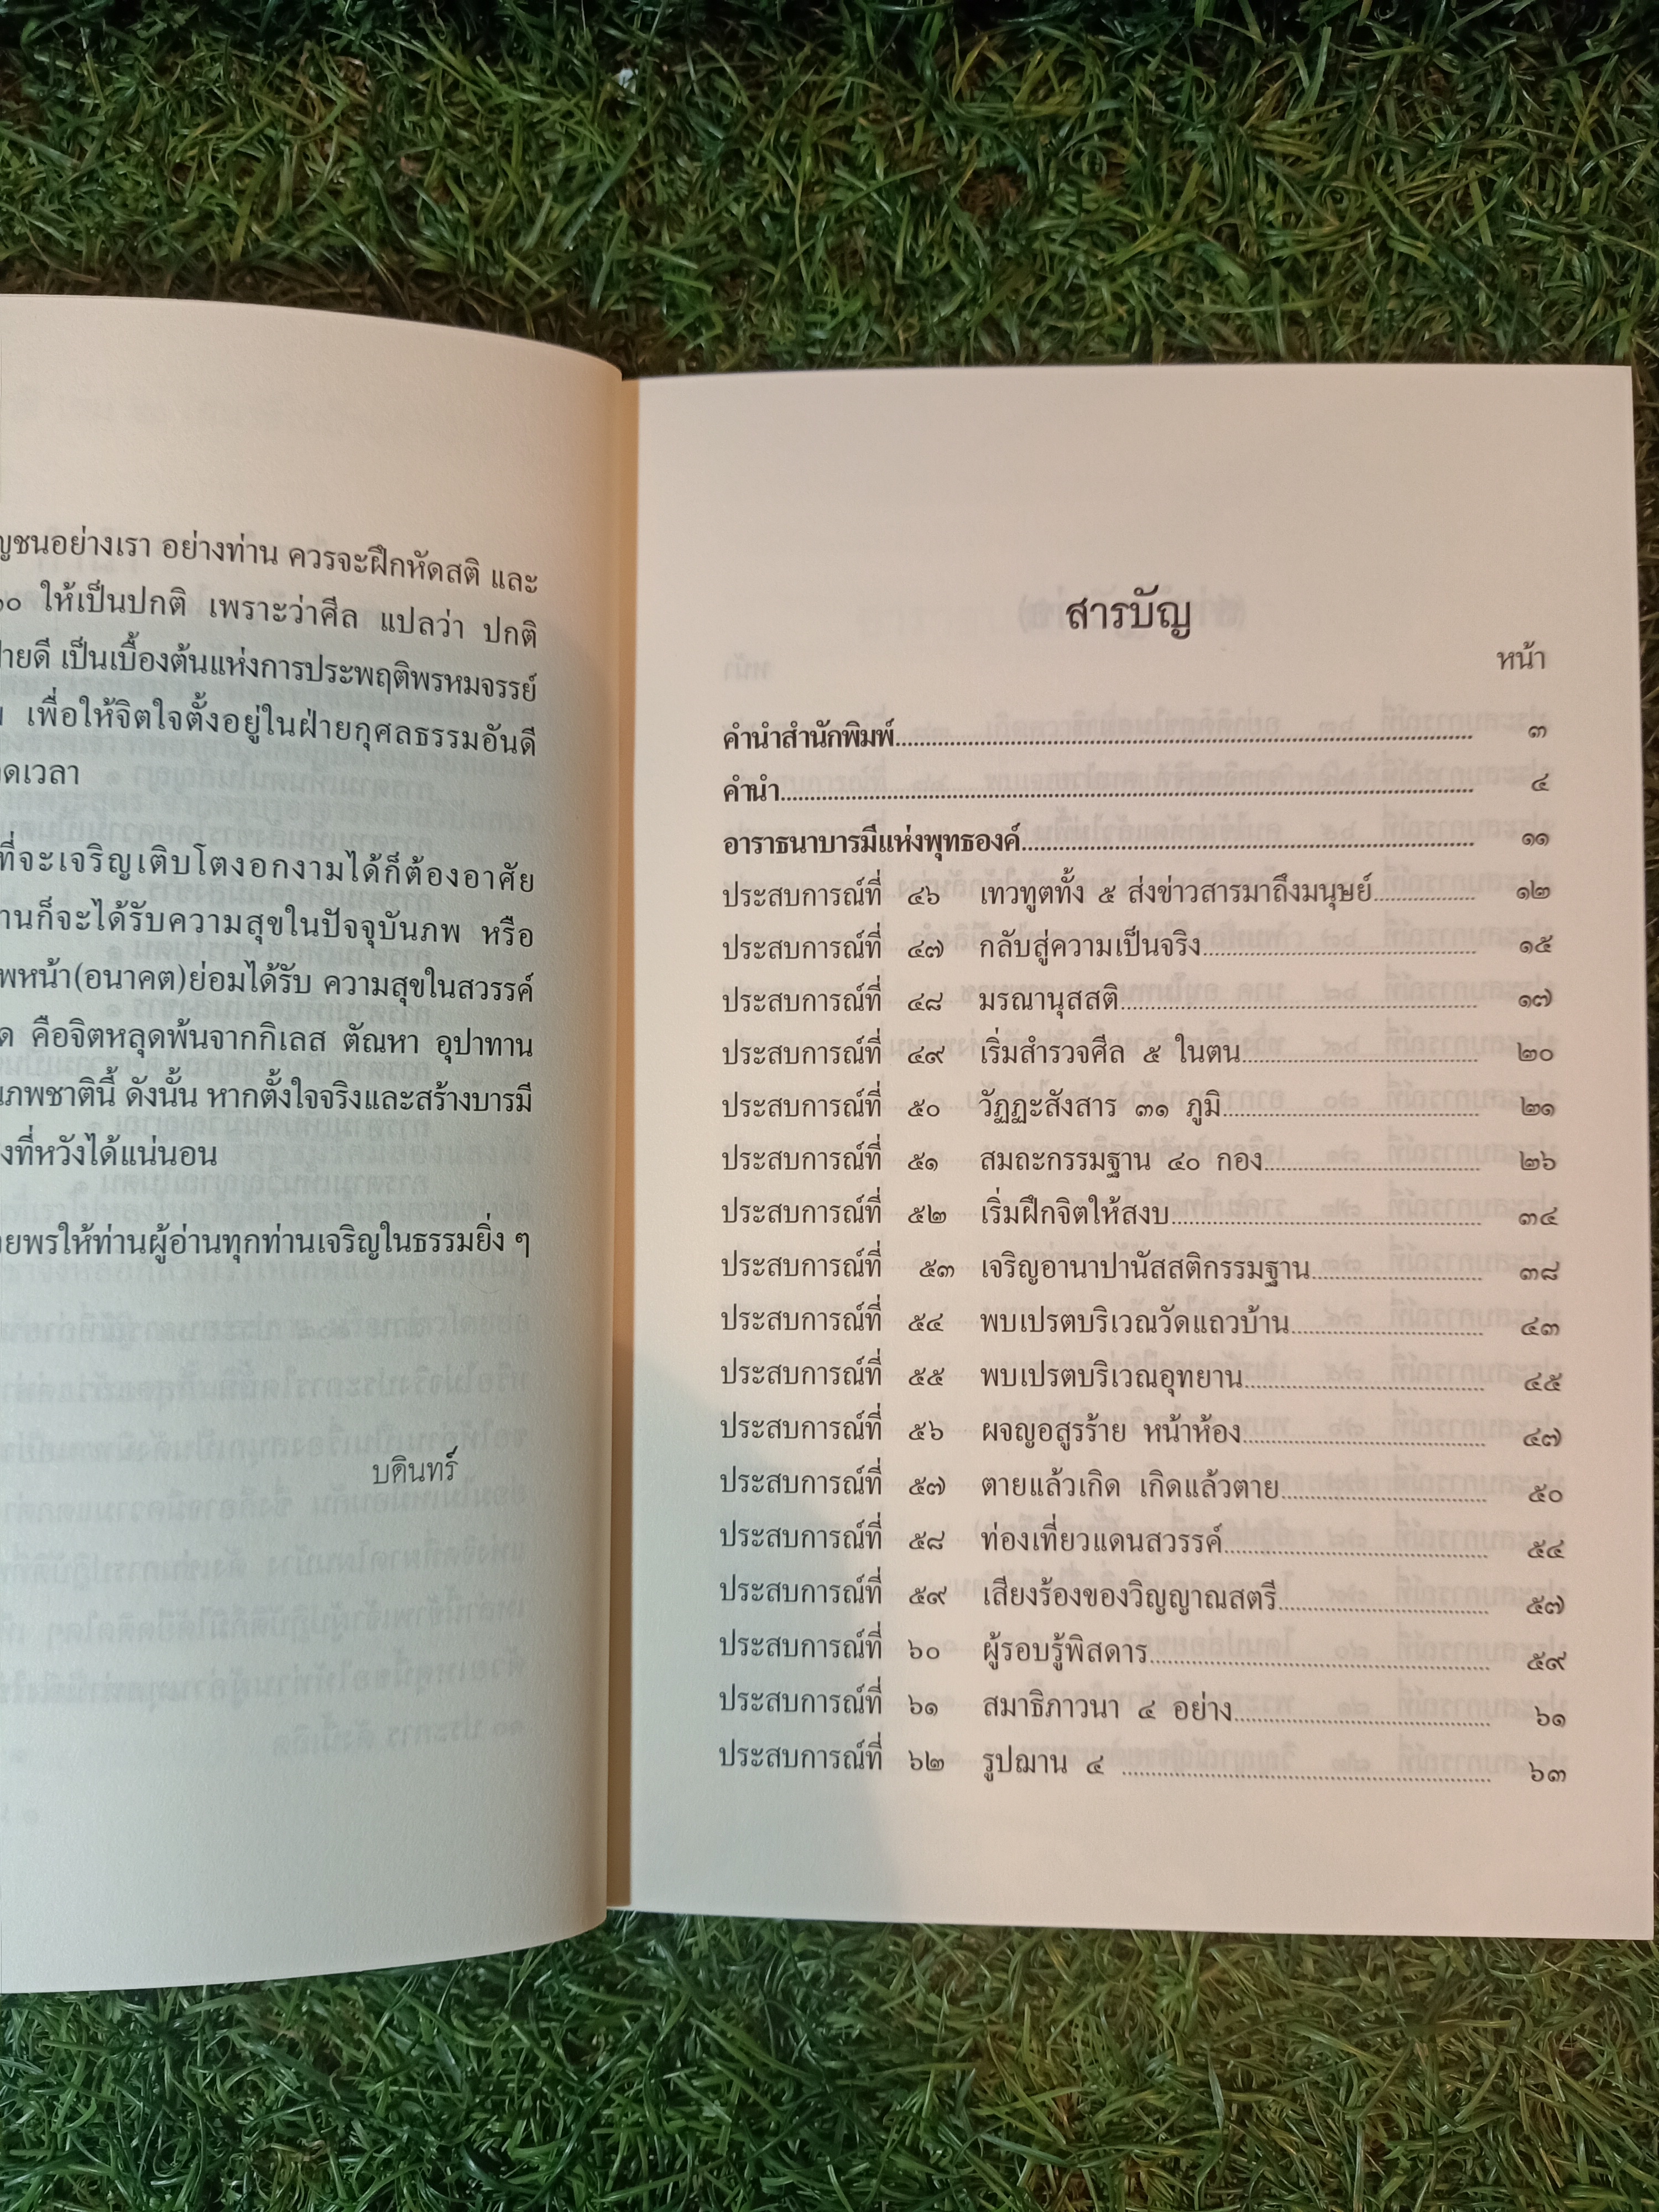 อย่างเรา อย่างท่าน ควรจะฝึกหัดสติ และ
ให้เป็นปกติ เพราะว่าศีล แปลว่า ปกติ
เป็นเบื้องต้นแห่งการประพฤติพรหมจรรย์
เพื่อให้จิตใจตั้งอยู่ในฝ่ายกุศลธรรมอันดี
เวลา
ที่จะเจริญเติบโตงอกงามได้ก็ต้องอาศัย
ก็จะได้รับความสุขในปัจจุบันภพ หรือ
หน้า(อนาคต)ย่อมได้รับ ความสุขในสวรรค์
คือจิตหลุดพ้นจากกิเลส ตัณหา อุปาทาน
ภพชาตินี้ ดังนั้น หากตั้งใจจริงและสร้างบารมี
ที่หวังได้แน่นอน
พรให้ท่านผู้อ่านทุกท่านเจริญในธรรมยิ่ง ๆ
บดินทร์
สารบัญ
หน้า
คำนำสำนักพิมพ์ ๓
คำนำ ๔
อาราธนาบารมีแห่งพุทธองค์ ๑๑
ประสบการณ์ที่ ๔๖ เทวทูตทั้ง ๕ ส่งข่าวสารมาถึงมนุษย์ ๑๒
ประสบการณ์ที่ ๔๗ กลับสู่ความเป็นจริง ๑๕
ประสบการณ์ที่ ๔๘ มรณานุสสติ ๑๗
ประสบการณ์ที่ ๔๙ เริ่มสำรวจศีล ๕ ในตน ๒๐
ประสบการณ์ที่ ๕๐ วัฏฏะสังสาร ๓๑ ภูมิ ๒๑
ประสบการณ์ที่ ๕๑ สมถะกรรมฐาน ๔๐ กอง ๒๖
ประสบการณ์ที่ ๕๒ เริ่มฝึกจิตให้สงบ ๓๔
ประสบการณ์ที่ ๕๓ เจริญอานาปานัสสติกรรมฐาน ๓๘
ประสบการณ์ที่ ๕๔ พบเปรตบริเวณวัดแถวบ้าน ๔๓
ประสบการณ์ที่ ๕๕ พบเปรตบริเวณอุทยาน ๔๕
ประสบการณ์ที่ ๕๖ ผจญอสูรร้าย หน้าห้อง ๔๗
ประสบการณ์ที่ ๕๗ ตายแล้วเกิด เกิดแล้วตาย ๕๐
ประสบการณ์ที่ ๕๘ ท่องเที่ยวแดนสวรรค์ ๕๔
ประสบการณ์ที่ ๕๙ เสียงร้องของวิญญาณสตรี ๕๗
ประสบการณ์ที่ ๖๐ ผู้รอบรู้พิสดาร ๕๙
ประสบการณ์ที่ ๖๑ สมาธิภาวนา ๔ อย่าง ๖๑
ประสบการณ์ที่ ๖๒ รูปฌาน ๔ ๖๓